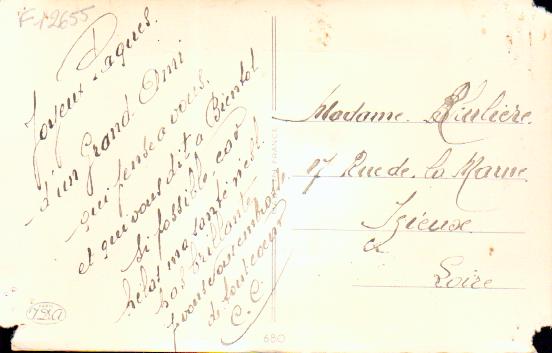 F12655
Joyeux Paques.
d'un Grand Ami
qui pense a vous,
et qui vous dit a Bientot
si possible. car
helas ma santé n'est
pas brillante
je vous embrasse
de tout coeur
C. C.
FRANCE
680
Madame. Riulière.
17 Rue de. la Marne
Izieux.
Loire